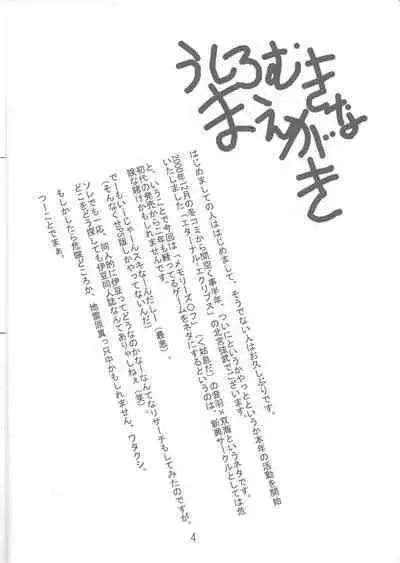 うしろむきな
まえがき
はじめましての人ははじめまして、そうでない人はお久しぶりです。
2000年12月の冬コミから間空く事半年、ついにというかやっとというか本年の活動を開始
いたしました「エターナル・エクリプス」の北宮弦武でございます。
と、いうことで今回は「メモリーズ〇フ」(く姑息だ)の音羽×双海というネタです。
初代の発売から二年も経ってるゲームをネタにするというのは、新興サークルとしては危
険な賭けかもしれません。
でーもいいじゃーんスキなーんだしー(最悪)
(そんなくせSS版しかやってないんだ)
ソレでも一応、同人的に伊豆ってどうなのかなーなんてなリサーチもしてみたのですが。
どこをどう探しても伊豆同人誌なんてありゃしねぇ(笑)
もしかしたら危険どころか、地雷原真っ只中かもしれません、ワタクシ。
つーことでまぁ。
4